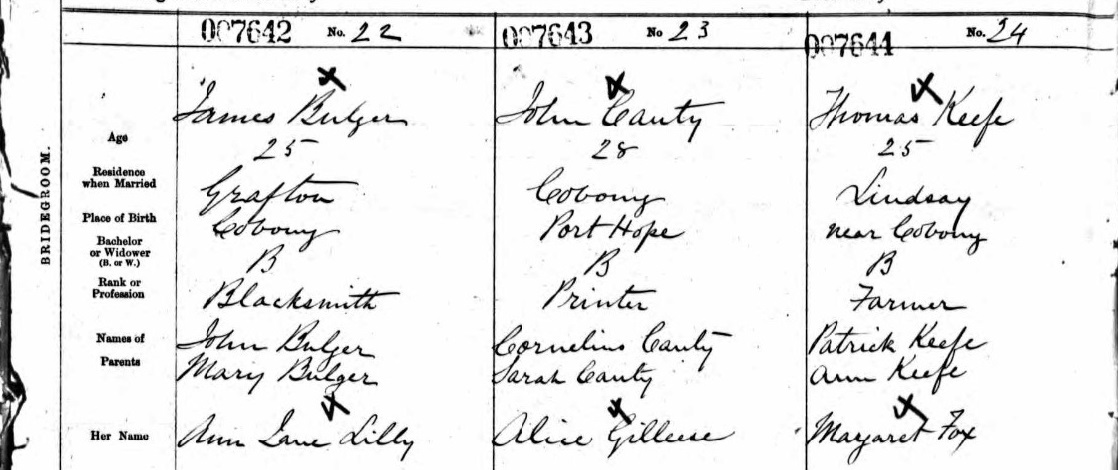 007642 No. 22 007643 No 23 007644 No. 24
BRIDEGROOM.
James Bulger John Canty Thomas Keefe
Age 25 28 25
Residence when Married Grafton Cobourg Lindsay
Place of Birth Cobourg Port Hope near Cobourg
Bachelor or Widower (B. or W.) B B B
Rank or Profession Blacksmith Printer Farmer
Names of John Bulger Cornelius Canty Patrick Keefe
Parents Mary Bulger Sarah Canty Ann Keefe
Her Name Ann Jane Lilly Alice Gilleese Margaret Fox